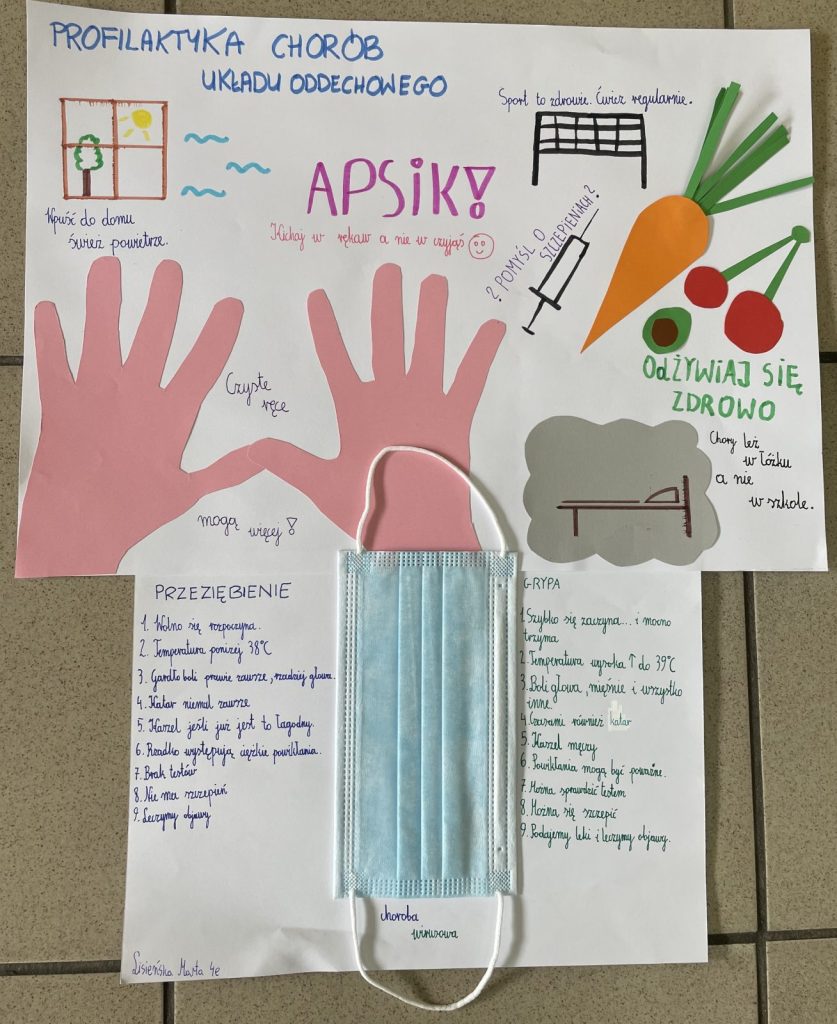 PROFILAKTYKA CHORÓB
UKŁADU ODDECHOWEGO
Sport to zdrowie. Ćwicz regularnie.
APSIK!
Kichaj w rękaw a nie w czyjąś
Wpuść do domu
świeże powietrze.
? POMYŚL O
SZCZEPIENIACH?
ODŻYWIAJ SIĘ
ZDROWO
Czyste
ręce
mogą więcej!
Chory leż
w łóżku
a nie
w szkole.
PRZEZIĘBIENIE
1. Wolno się rozpoczyna.
2. Temperatura poniżej 38°C
3. Gardło boli prawie zawsze, rzadziej głowa.
4. Katar niemal zawsze
5. Kaszel jeśli już jest to łagodny.
6. Rzadko występują ciężkie powikłania.
7. Brak testów
8. Nie ma szczepień
9. Leczymy objawy
GRYPA
1. Szybko się zaczyna... i mocno
trzyma
2. Temperatura wysoka ↑ do 39°C
3. Boli głowa, mięśnie i wszystko
inne
4. Czasami również katar
5. Kaszel męczy
6. Powikłania mogą być poważne.
7. Można sprawdzić testem
8. Można się szczepić
9. Podajemy leki i leczymy objawy.
choroba
wirusowa
Lisieńska Marta 4e